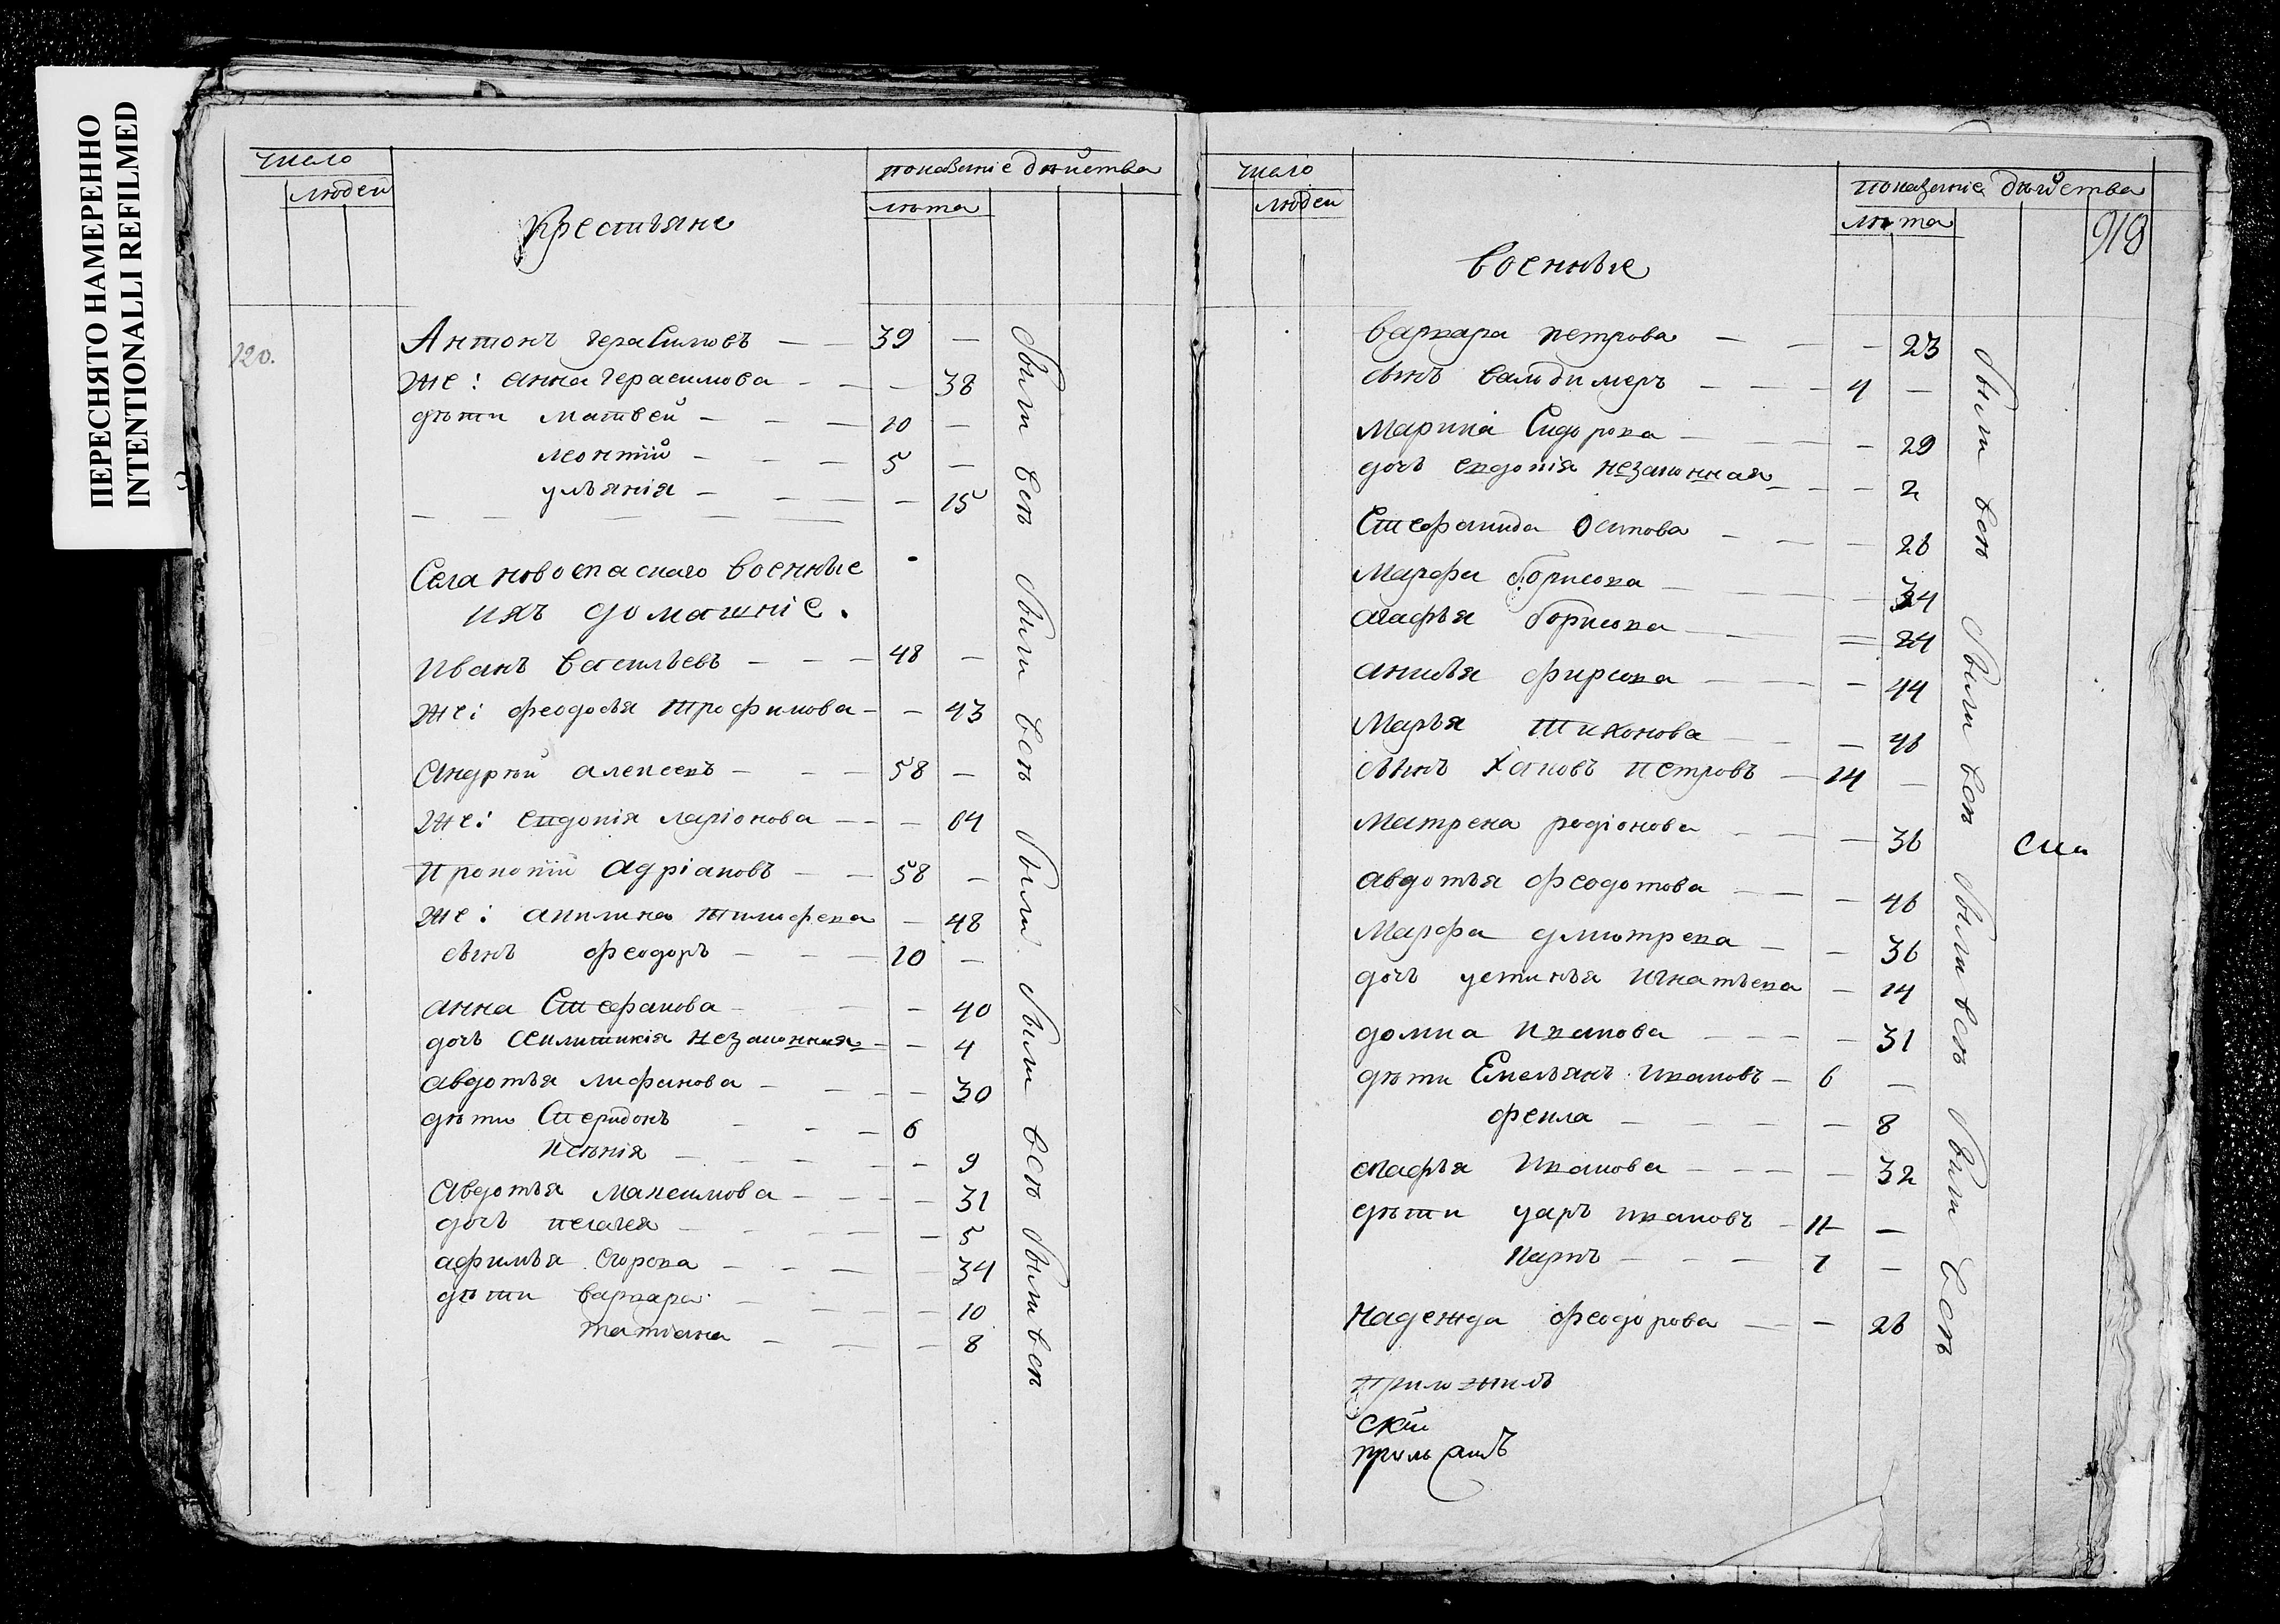 ПЕРЕСНЯТО НАМЕРЕННО
INTENTIONALLI REFILMED
число
людей
крестьяне
показаніе дѣйства
лѣта
120.
Антонъ герасимовъ — — 39 —
же: анна герасимова — — — 38
дѣти матвей — — — 10 —
леонтій — — — 5 —
ульянія — — — — 15
Села новоспаскаго военные
ихъ домашніе.
иванъ васильевъ — — — 48 —
же: феодосья трофимова — — 43
андрѣй алексеевъ — — — 58 —
же: евдокія ларіонова — — — 64
прокопій адріановъ — — 58 —
же: акилина тимофеева — 48
сынъ феодоръ — — — 20 —
анна Стефанова — — — 40
дочь незаконная — — 4
авдотья — — — 30
дѣти Спиридонъ — — — 6
ксенія — — — — — 9
авдотья максимова — — — — 31
дочь пелагея — — — — 5
афимья егорова — — — — 34
дѣти варвара — — — — 10
татіана — — — 8
были всѣ были всѣ были были всѣ были всѣ
число
людей
военные
показаніе дѣйства
лѣта
918
варвара петрова — — — 23
сынъ валодимеръ — — — 4 —
марина Сидорова — — — — 29
дочь евдокія незаконная — — — 2
Стефанида Осипова — — — 26
Марфа борисова — — — — 34
агафья борисова — — = 24
анисья фирсова — — — — 44
Марья тихонова — — — 46
сынъ Яковъ петровъ — 14 —
Матрена родіонова — — — 36
авдотья феодотова — — — 46
Марфа дмитрева — — 36
дочь устинья игнатьева — 14
домна иванова — — — — 31
дѣти Емельянъ ивановъ — 6 —
фекла — — — — — 8
агафья иванова — — — — 32
дѣти ивановъ — 11 —
карпъ — — — 7 —
надежда феодорова — — 26
были всѣ были всѣ были всѣ были всѣ
сии
приложилъ
скій